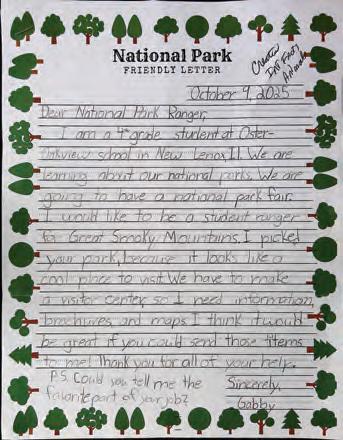 National Park
FRIENDLY LETTER
October 9, 2025
Dear National Park Ranger,
I am a 4th grade student at Oster-
Oakview school in New Lenox Il. We are
learning about our national parks. We are
going to have a national park fair.
I would like to be a student ranger
for Great Smoky Mountains. I picked
your park, because it looks like a
cool place to visit. We have to make
a visitor center, so I need information,
brochures, and maps. I think it would
be great if you could send those items
to me! Thank you for all of your help.
P.S. Could you tell me the
favorite part of your job?
Sincerely,
Gabby